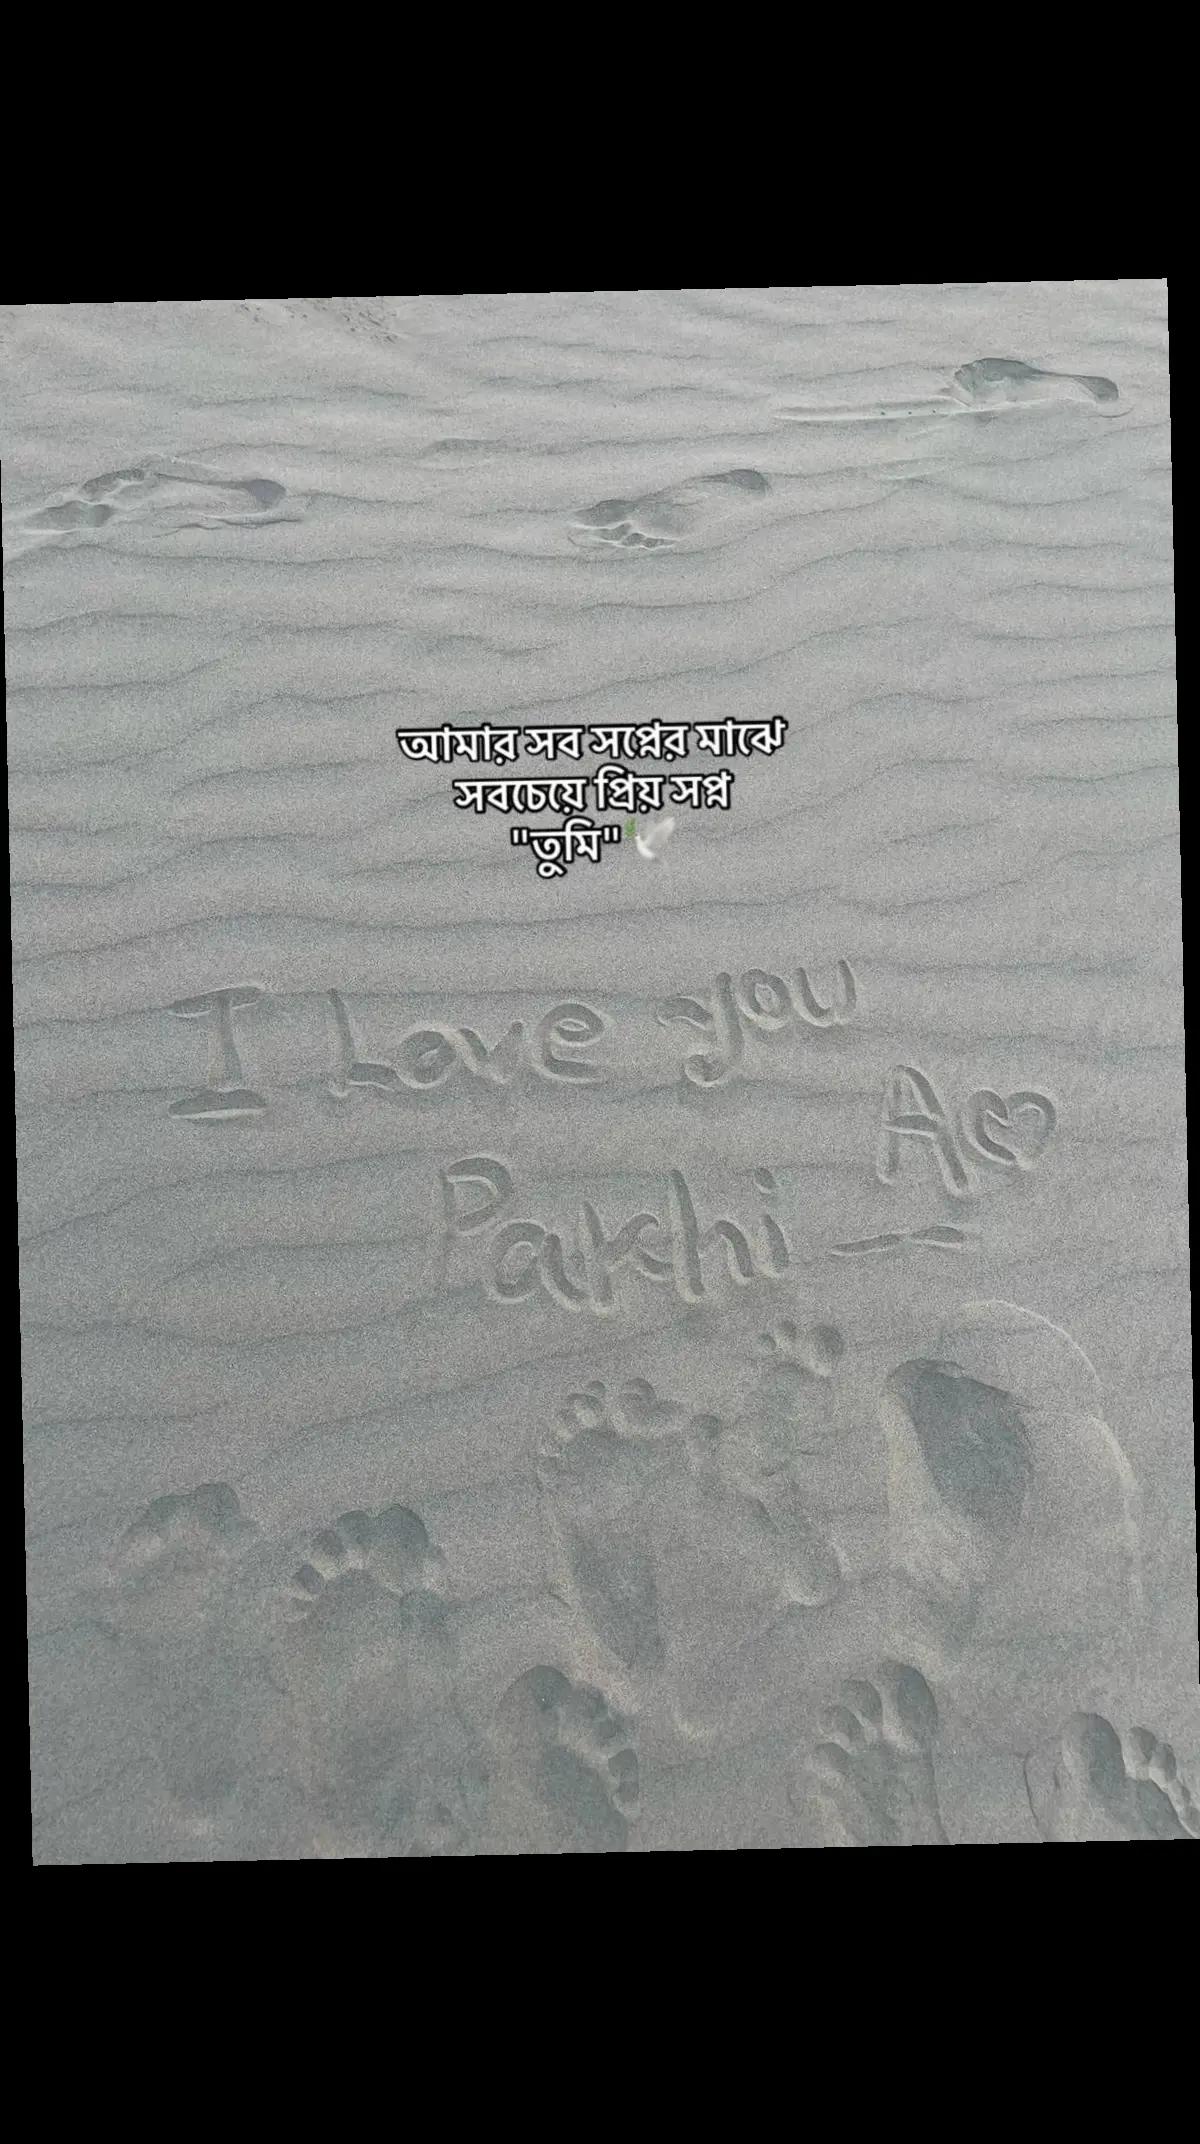 আমার সব সপ্নের মাঝে
সবচেয়ে প্রিয় সপ্ন
"তুমি"🕊️
I Love you
A
Pakhi —